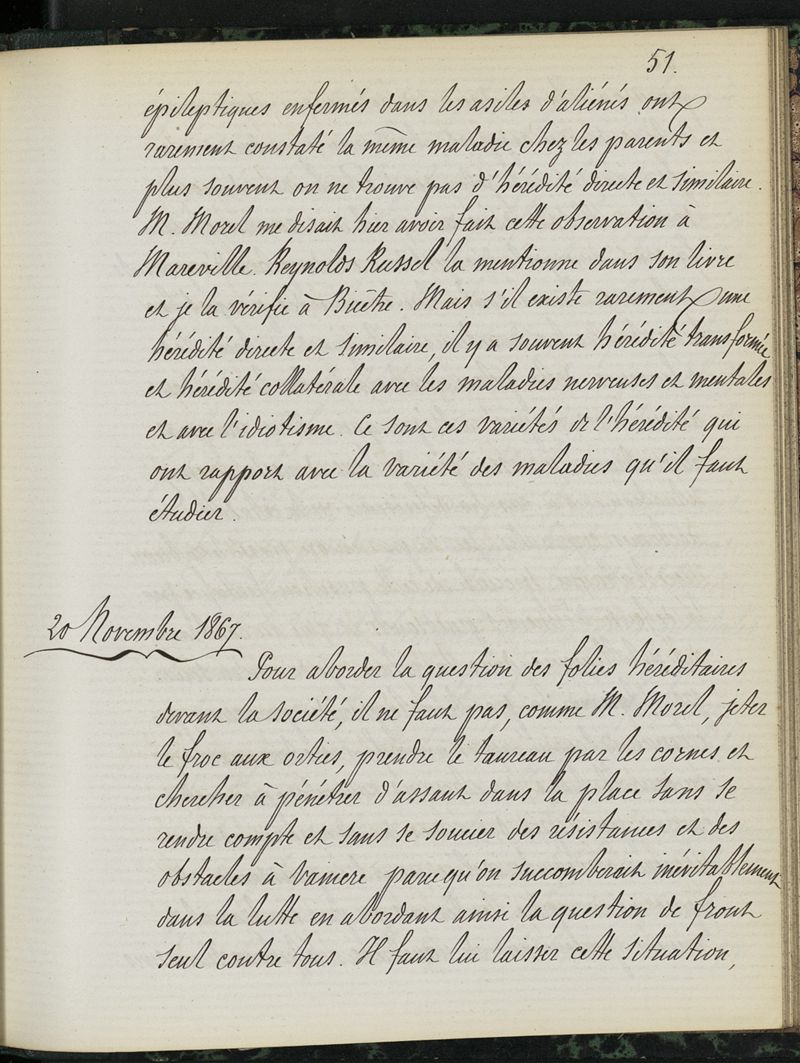 51.
épileptiques enfermés dans les asiles d'aliénés ont
rarement constaté la même maladie chez les parents et
plus souvent on ne trouve pas d'hérédité directe et similaire.
M. Morel me disait hier avoir fait cette observation à
Mareville. Reynolds Russel la mentionne dans son livre
et je la vérifie à Bicêtre. Mais s'il existe rarement une
hérédité directe et similaire, il y a souvent hérédité transformée
et hérédité collatérale avec les maladies nerveuses et mentales
et avec l'idiotisme. Ce sont ces variétés de l'hérédité qui
ont rapport avec la variété des maladies qu'il faut
étudier.
20 Novembre 1867.
Pour aborder la question des folies héréditaires
devant la société, il ne faut pas, comme M. Morel, jeter
le froc aux orties, prendre le taureau par les cornes et
chercher à pénétrer d'assaut dans la place sans se
rendre compte et sans se soucier des résistances et des
obstacles à vaincre parcequ'on succomberait inévitablement
dans la lutte en abordant ainsi la question de front
seul contre tous. Il faut lui laisser cette situation,